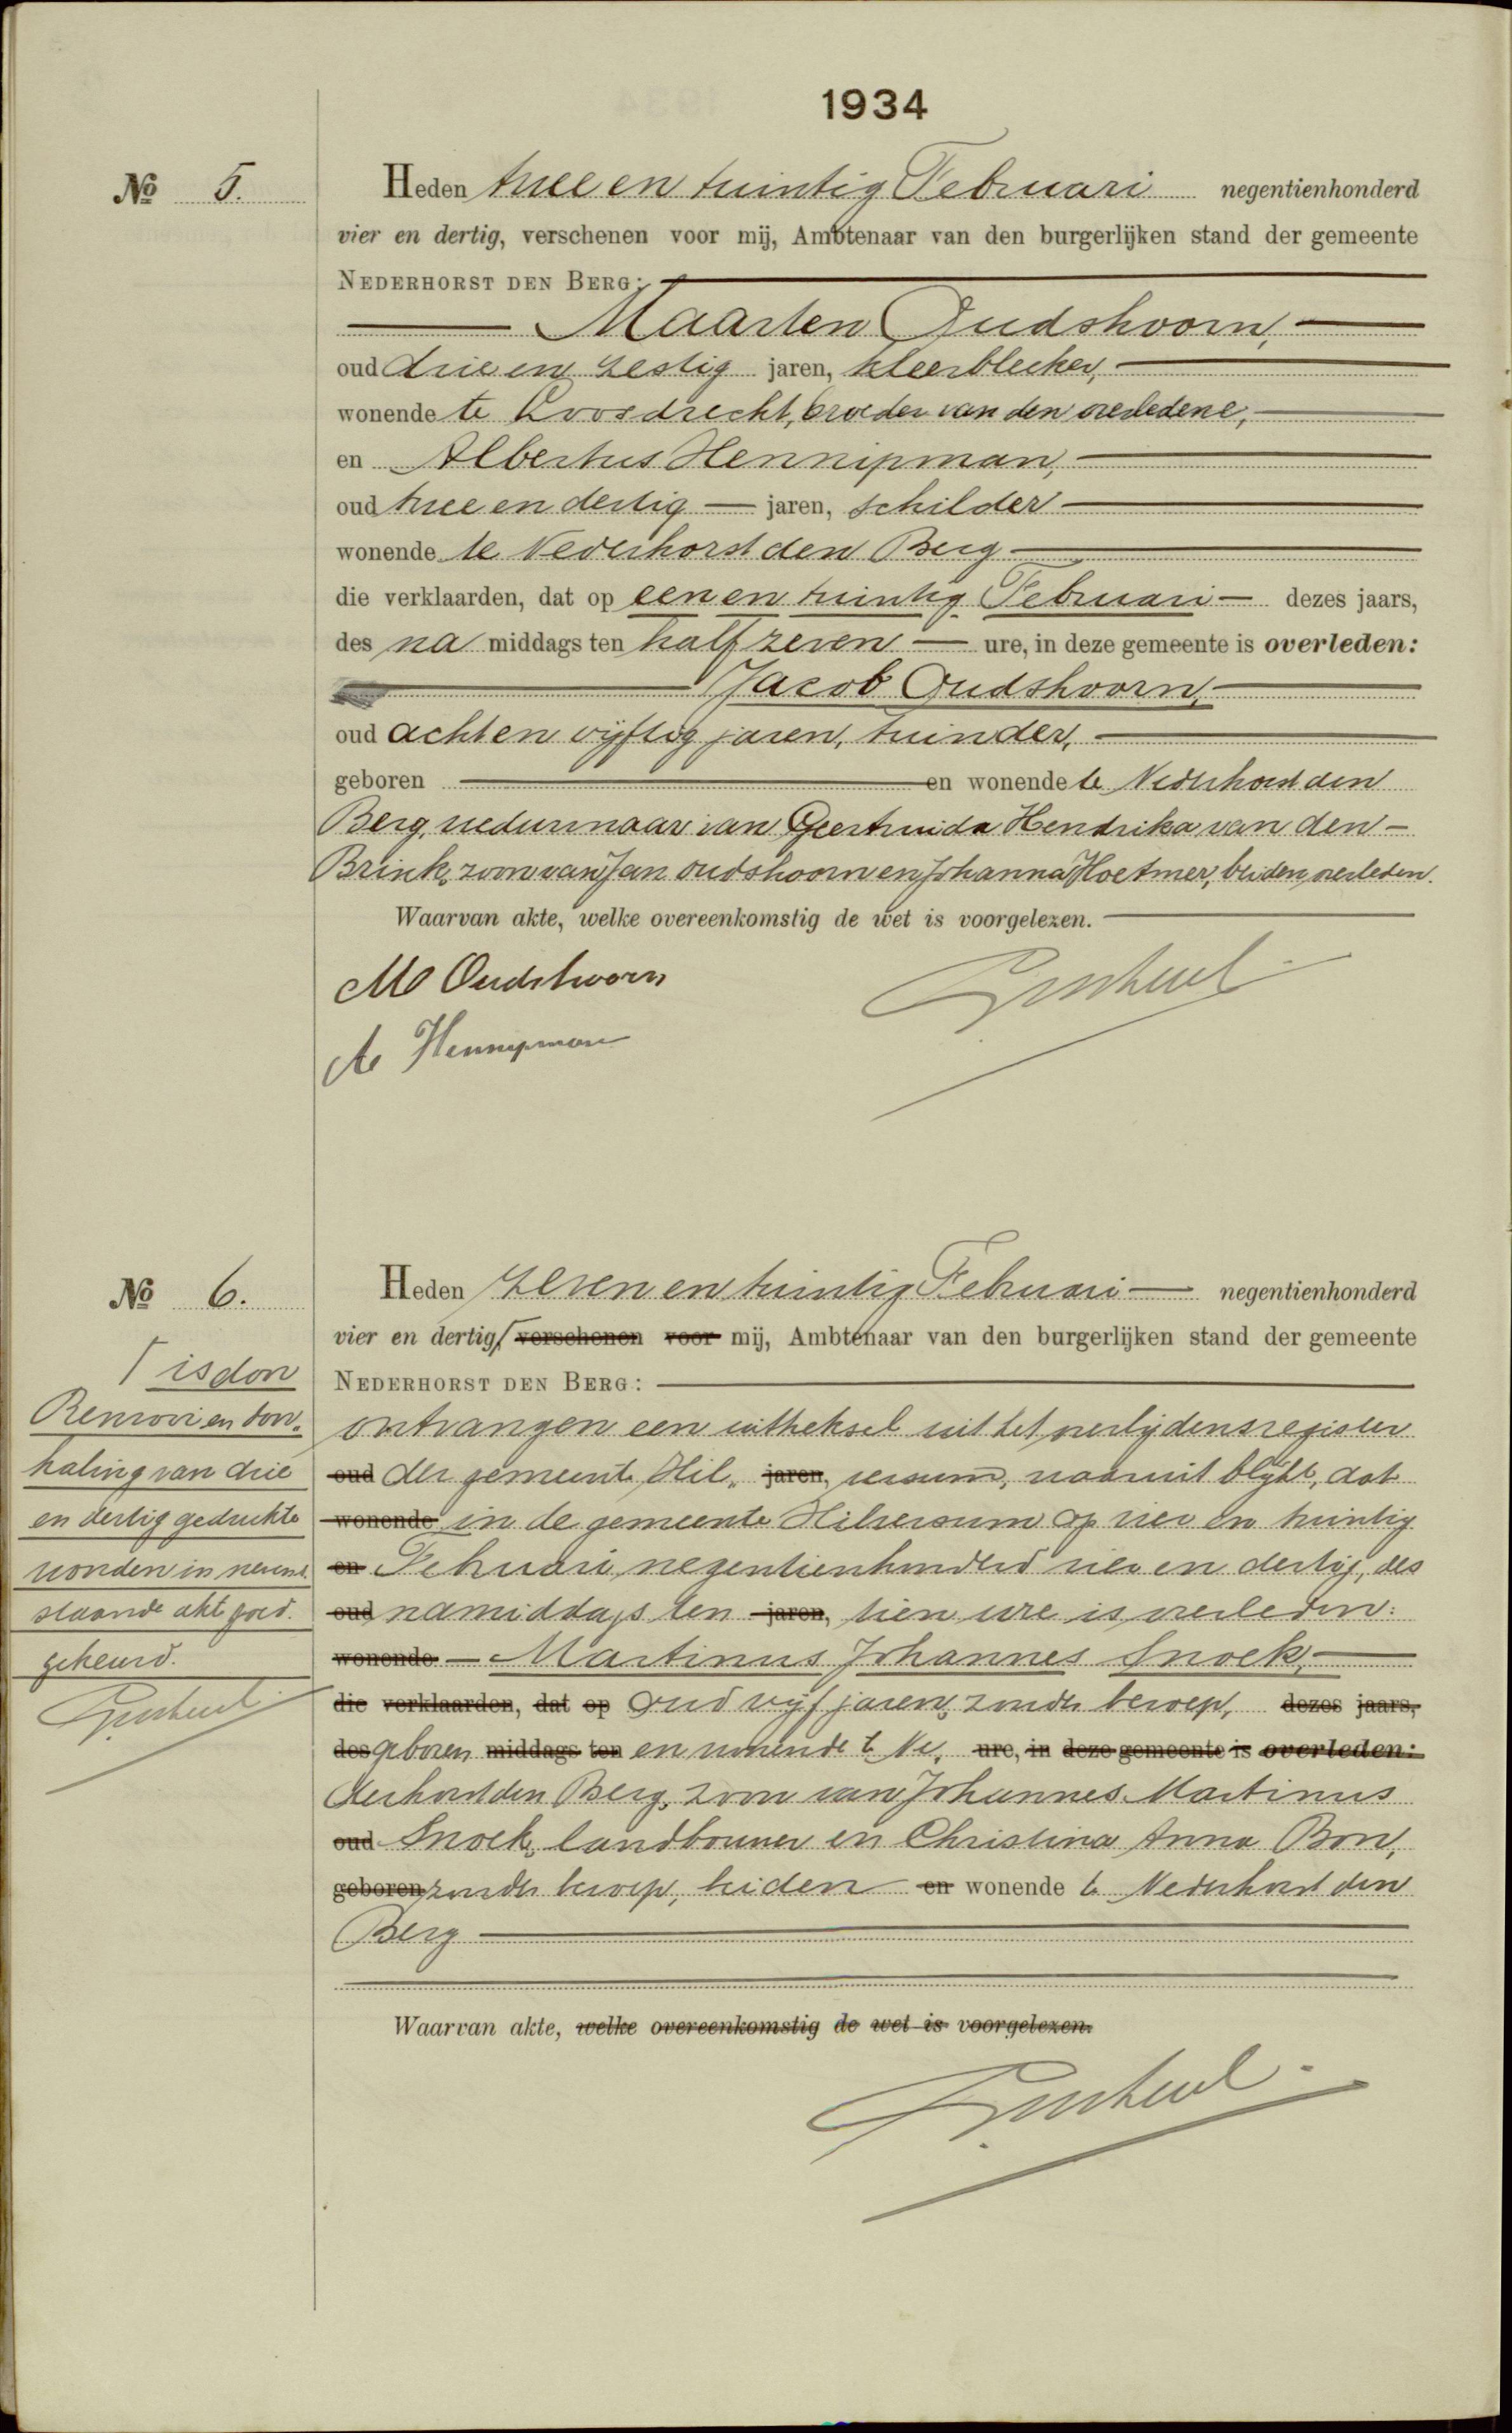 1934
No 5.
Heden twee en twintig Februari negentienhonderd
vier en dertig, verschenen voor mij, Ambtenaar van den burgerlijken stand der gemeente
NEDERHORST DEN BERG:
Maarten Oudshoorn,
oud drie en zestig jaren, kleerbleeker,
wonende te Loosdrecht, broeder van den overledene,
en Albertus Hennipman,
oud twee en dertig jaren, schilder
wonende te Nederhorst den Berg
die verklaarden, dat op een en twintig Februari dezes jaars,
des na middags ten half zeven ure, in deze gemeente is overleden:
Jacob Oudshoorn,
oud acht en vijftig jaren, tuinder,
geboren en wonende te Nederhorst den
Berg, weduwnaar van Geertruida Hendrika van den
Brink, zoon van Jan Oudshoorn en Johanna Hoetmer, beiden overleden.
Waarvan akte, welke overeenkomstig de wet is voorgelezen.
M Oudshoorn
A Hennipman
No 6.
Heden zeven en twintig Februari negentienhonderd
vier en dertig, verschenen voor mij, Ambtenaar van den burgerlijken stand der gemeente
NEDERHORST DEN BERG:
ontvangen een uittreksel uit het overlijdensregister
oud der gemeente Hil„ jaren, versum, waaruit blijkt, dat
wonende in de gemeente Hilversum op vier en twintig
en Februari negentienhonderd vier en dertig, des
oud namiddags ten jaren, tien ure is overleden:
wonende Martinus Johannes Snoek,
die verklaarden, dat op oud vijf jaren, zonder beroep, dezes jaars,
des geboren middags ten en wonende te Ne„ ure, in deze gemeente is overleden:
derhorst den Berg, zoon van Johannes Martinus
oud Snoek, landbouwer en Christina Anna Bon,
geboren zonder beroep, beiden en wonende te Nederhorst den
Berg
Waarvan akte, welke overeenkomstig de wet is voorgelezen.
is door
Renvooi en door„
haling van drie
en dertig gedrukte
woorden in nevens„
staande akte goed„
gekeurd.